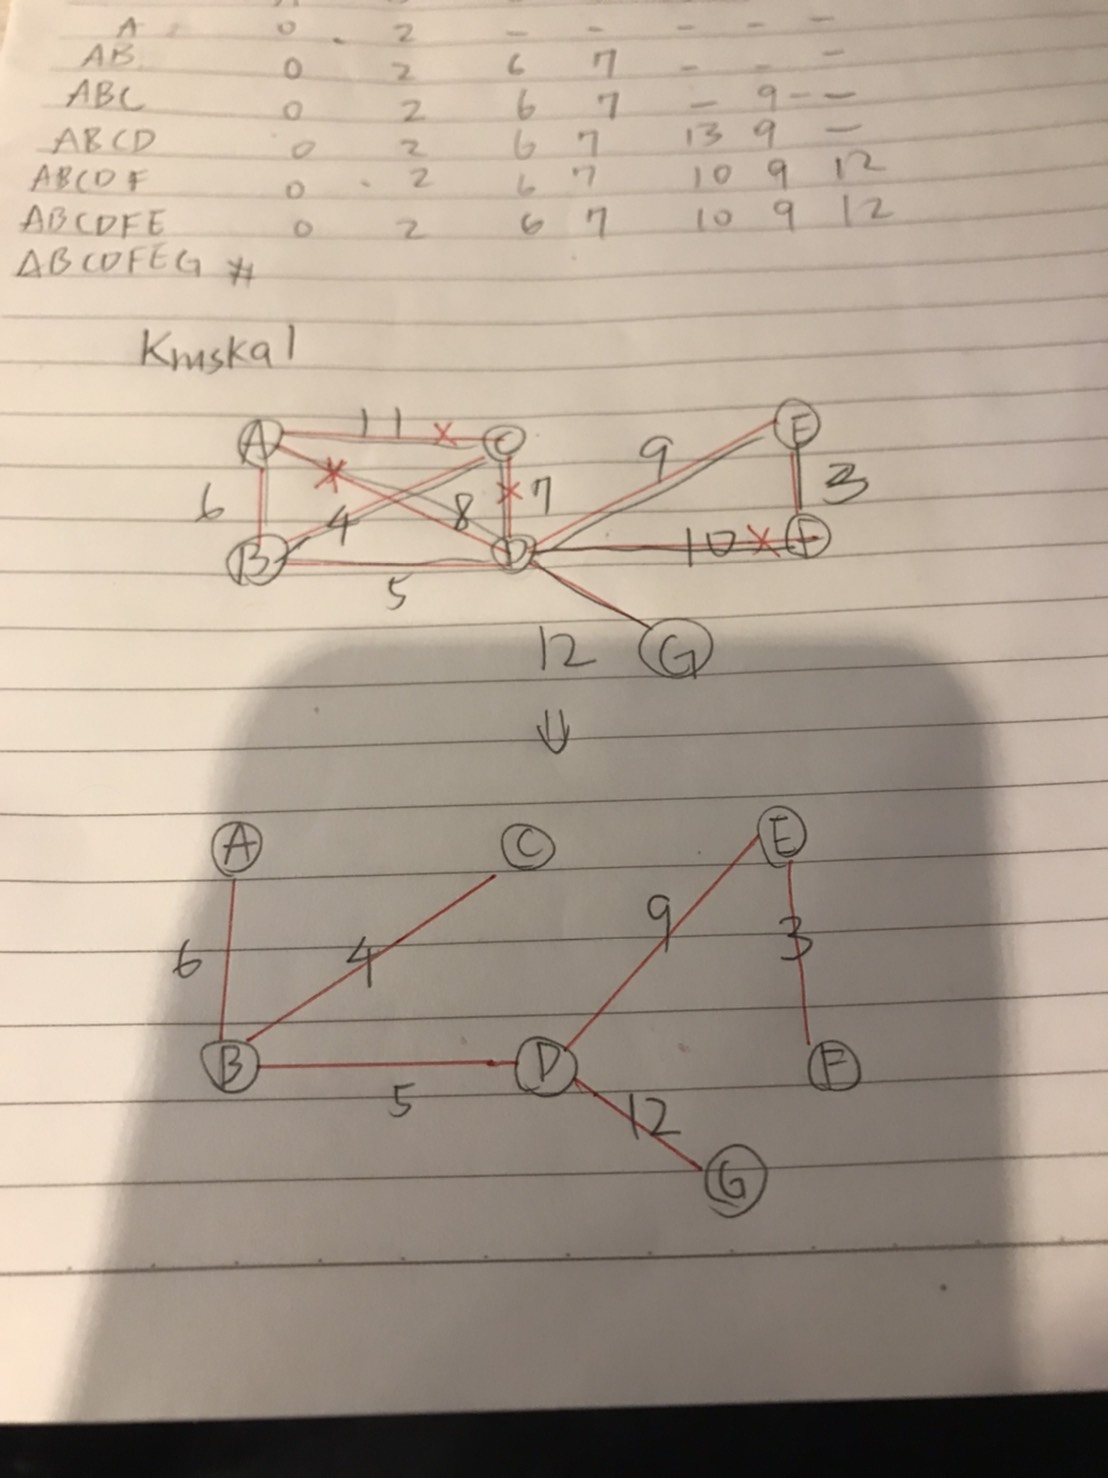 A 0 2 - - - - -
AB 0 2 6 7 - - -
ABC 0 2 6 7 - 9 - -
ABCD 0 2 6 7 13 9 -
ABCDF 0 2 6 7 10 9 12
ABCDFE 0 2 6 7 10 9 12
ABCDFEG #
Kruskal
A 11 C E
6 4 8 7 9 3
B 5 D 10 F
12 G
⇓
A C E
6 4 9 3
B 5 D F
12
G